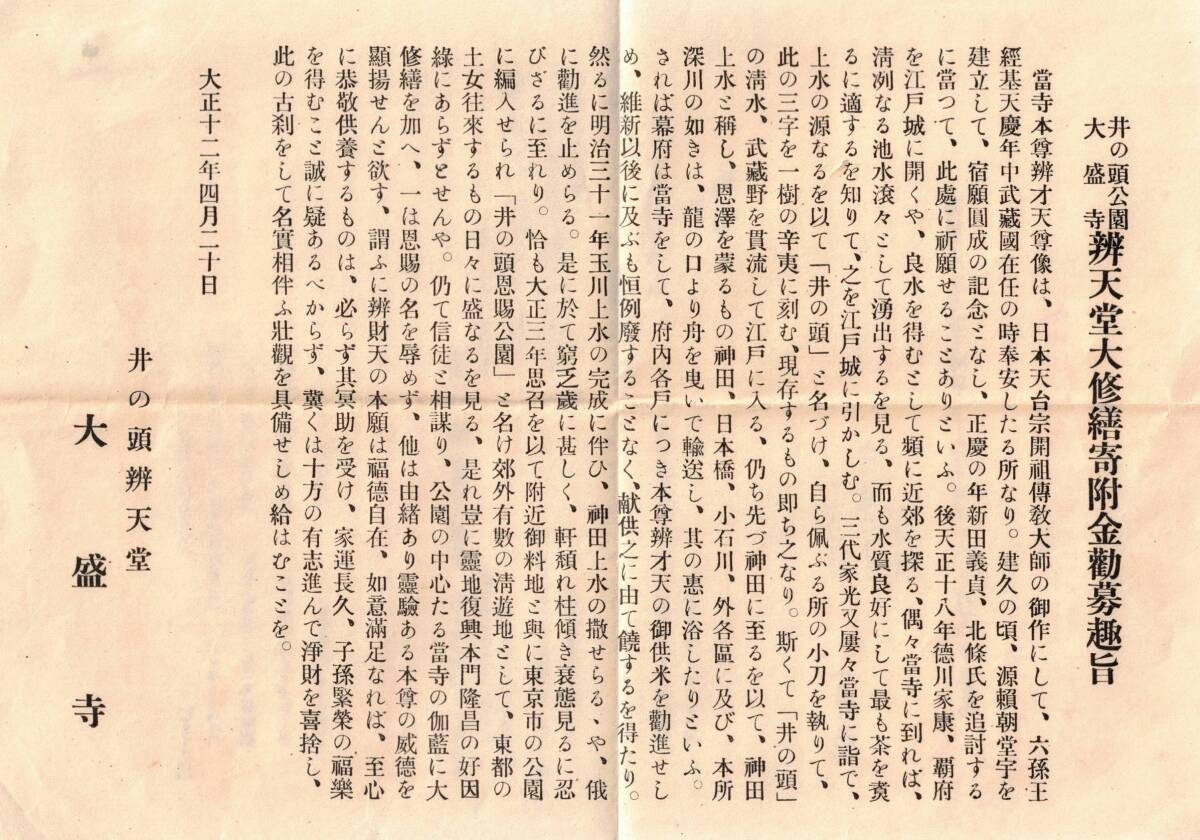 井の頭公園
大盛寺
辨天堂大修繕寄附金勸募趣旨
當寺本尊辨才天尊像は、日本天台宗開祖傳敎大師の御作にして、六孫王
經基天慶年中武藏國在任の時奉安したる所なり。建久の頃、源賴朝堂宇を
建立して、宿願圓成の記念となし、正慶の年新田義貞、北條氏を追討する
に當つて、此處に祈願せることありといふ。後天正十八年德川家康、覇府
を江戶城に開くや、良水を得むとして頻に近郊を探る、偶々當寺に到れば、
淸冽なる池水滾々として湧出するを見る、而も水質良好にして最も茶を煑
るに適するを知りて、之を江戶城に引かしむ。三代家光又屢々當寺に詣で、
上水の源なるを以て「井の頭」と名づけ、自ら佩ぶる所の小刀を執りて、
此の三字を一樹の辛夷に刻む、現存するもの卽ち之なり。斯くて「井の頭」
の淸水、武藏野を貫流して江戶に入る、仍ち先づ神田に至るを以て、神田
上水と稱し、恩澤を蒙るもの神田、日本橋、小石川、外各區に及び、本所
深川の如きは、龍の口より舟を曳いで輸送し、其の惠に浴したりといふ。
されば幕府は當寺をして、府內各戶につき本尊辨才天の御供米を勸進せし
め、維新以後に及ぶも恒例廢することなく、献供之に由て饒するを得たり。
然るに明治三十一年玉川上水の完成に伴ひ、神田上水の撒せらるゝや、俄
に勸進を止めらる。是に於て窮乏歲に甚しく、軒頽れ柱傾き衰態見るに忍
びざるに至れり。恰も大正三年思召を以て附近御料地と與に東京市の公園
に編入せられ「井の頭恩賜公園」と名け郊外有數の淸遊地として、東都の
士女往來するもの日々に盛なるを見る、是れ豈に靈地復興本門隆昌の好因
綠にあらずとせんや。仍て信徒と相謀り、公園の中心たる當寺の伽藍に大
修繕を加へ、一は恩賜の名を辱めず、他は由緒あり靈驗ある本尊の威德を
顯揚せんと欲す、謂ふに辨財天の本願は福德自在、如意滿足なれば、至心
に恭敬供養するものは、必らず其冥助を受け、家運長久、子孫緊榮の福樂
を得むこと誠に疑あるべからず、冀くは十方の有志進んで淨財を喜捨し、
此の古刹をして名實相伴ふ壯觀を具備せしめ給はむことを。
大正十二年四月二十日
井の頭辨天堂
大盛寺